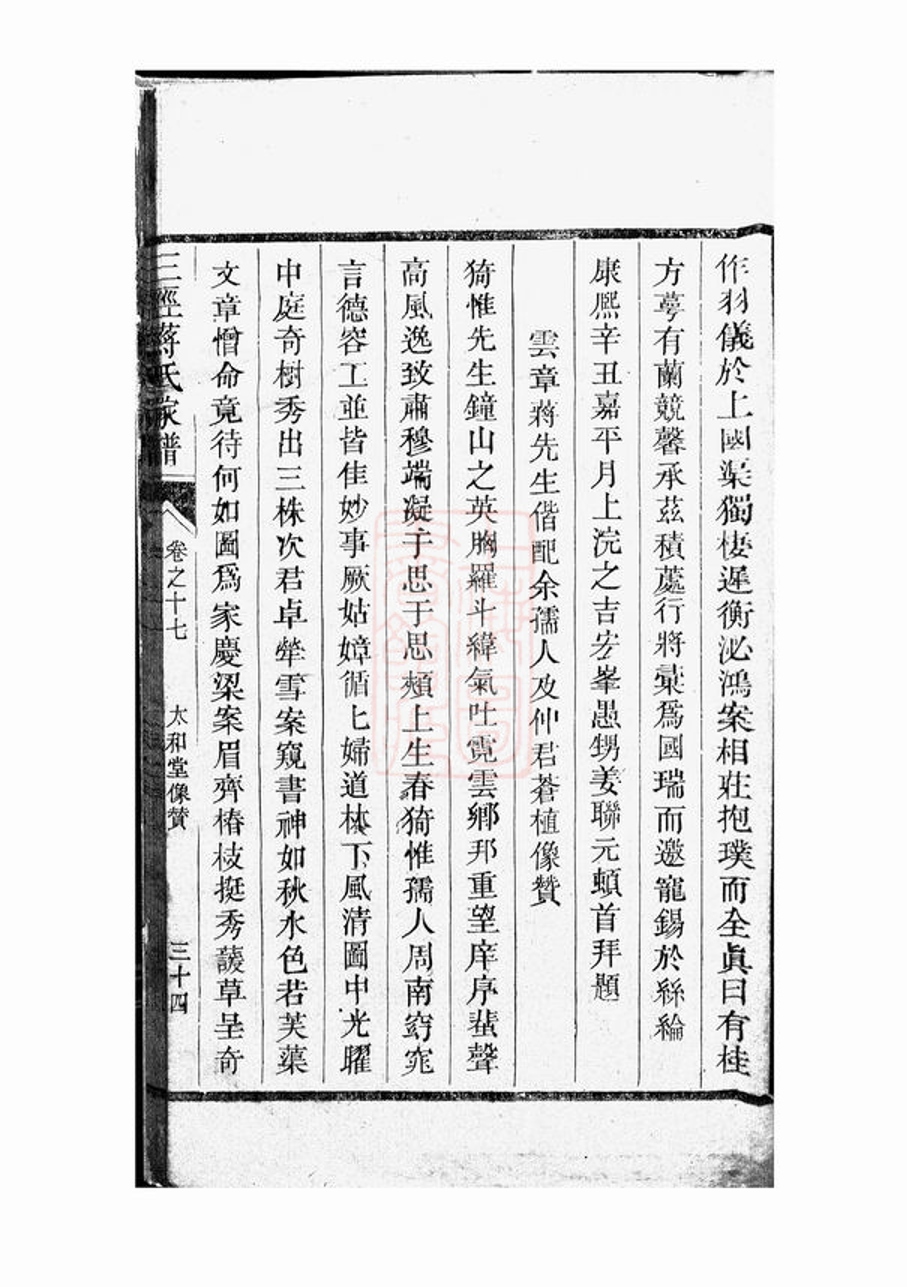 作羽儀於上國渠獨棲遲衡泌鴻案相莊抱璞而全眞曰有桂
方蕚有蘭競馨承茲積蘧行將彙爲國瑞而邀寵錫於絲綸
康熙辛丑嘉平月上浣之吉宏峯愚甥姜聯元頓首拜題
雲章蔣先生偕配余孺人及仲君蒼植像贊
猗惟先生鐘山之英胸羅斗緯氣吐霓雲鄉邦重望庠序蜚聲
高風逸致肅穆端凝于思于思頰上生春猗惟孺人周南窈窕
言德容工並皆佳妙事厥姑嫜循七婦道林下風淸圖中光曜
中庭奇樹秀出三株次君卓犖雪案窺書神如秋水色若芙蕖
文章憎命竟待何如圖爲家慶梁案眉齊椿枝挺秀諼草呈奇
三徑蔣氏家譜
卷之十七
太和堂像贊
三十四